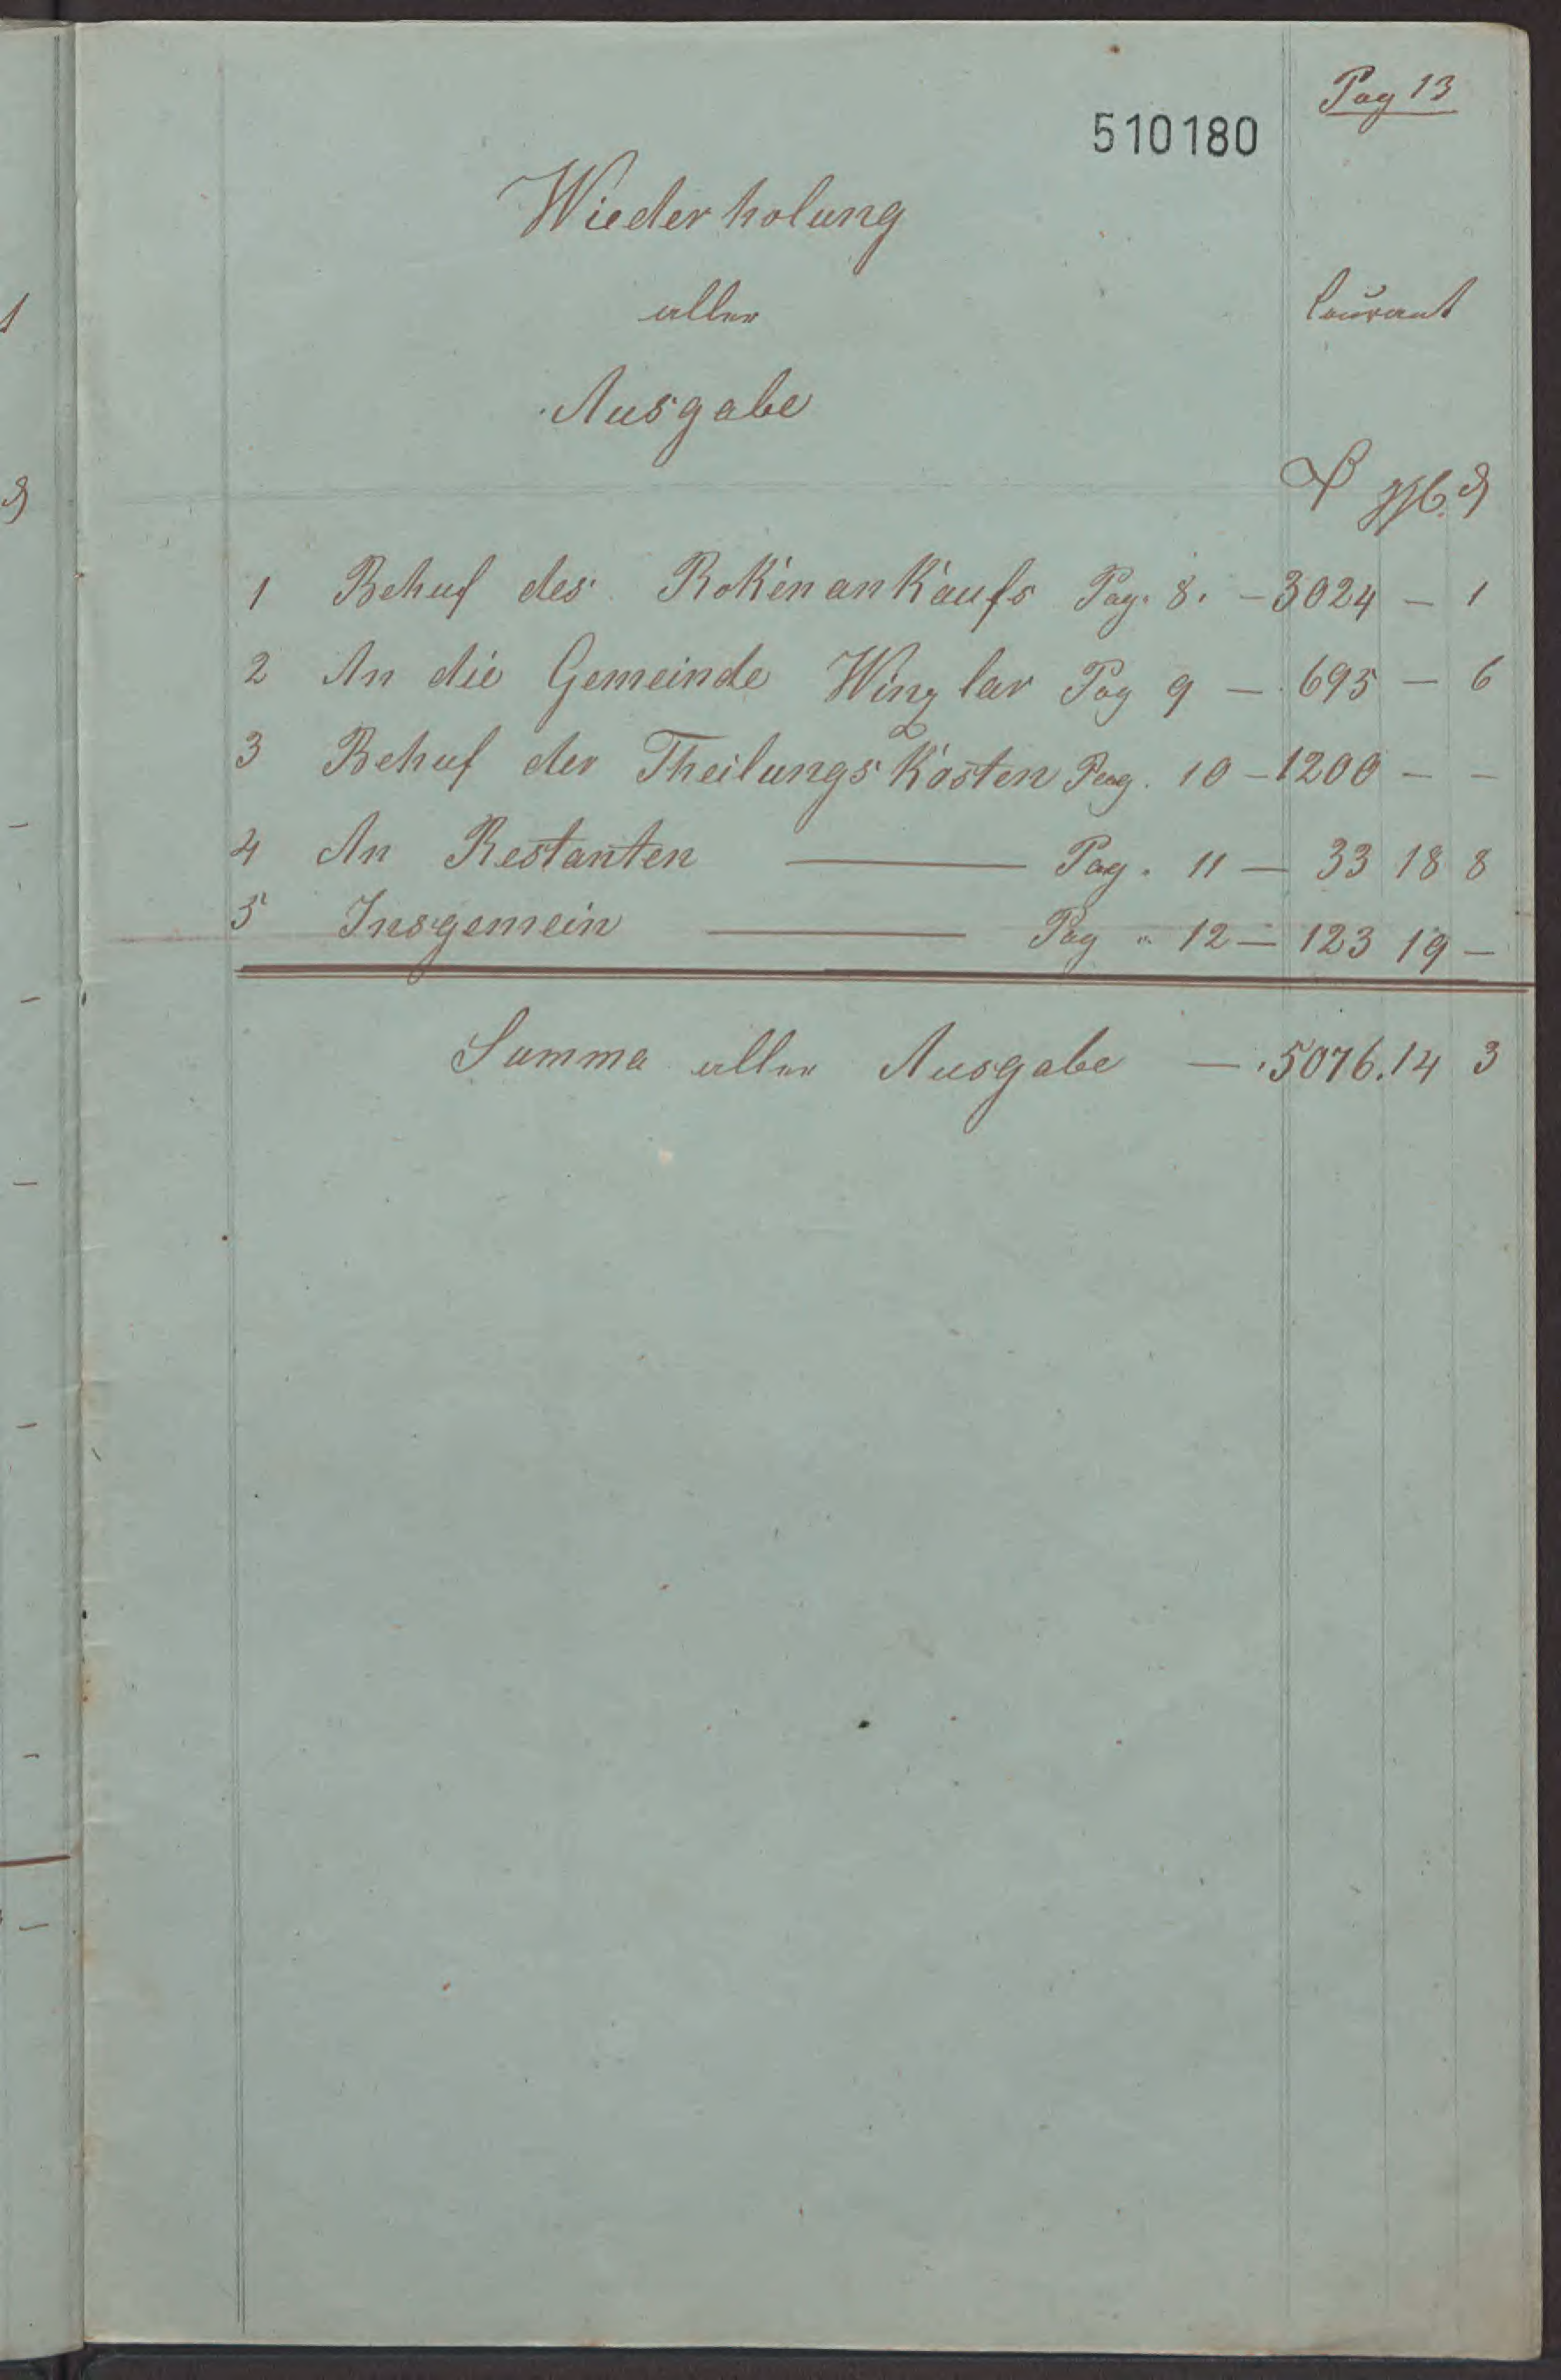 Pag 13
510180
Wiederholung
aller
Courant
Ausgabe
₰
1 Behuf des RoKenanKaufs Pag. 8. – 3024 – 1
2 An die Gemeinde Winzlar Pag 9 – 695 – 6
3 Behuf der TheilungsKosten Pag. 10 – 1200 – –
4 An Restanten — Pag. 11 – 33 18 8
5 Insgemein — Pag. 12 – 123 19 –
Summa aller Ausgabe – 5076. 14 3